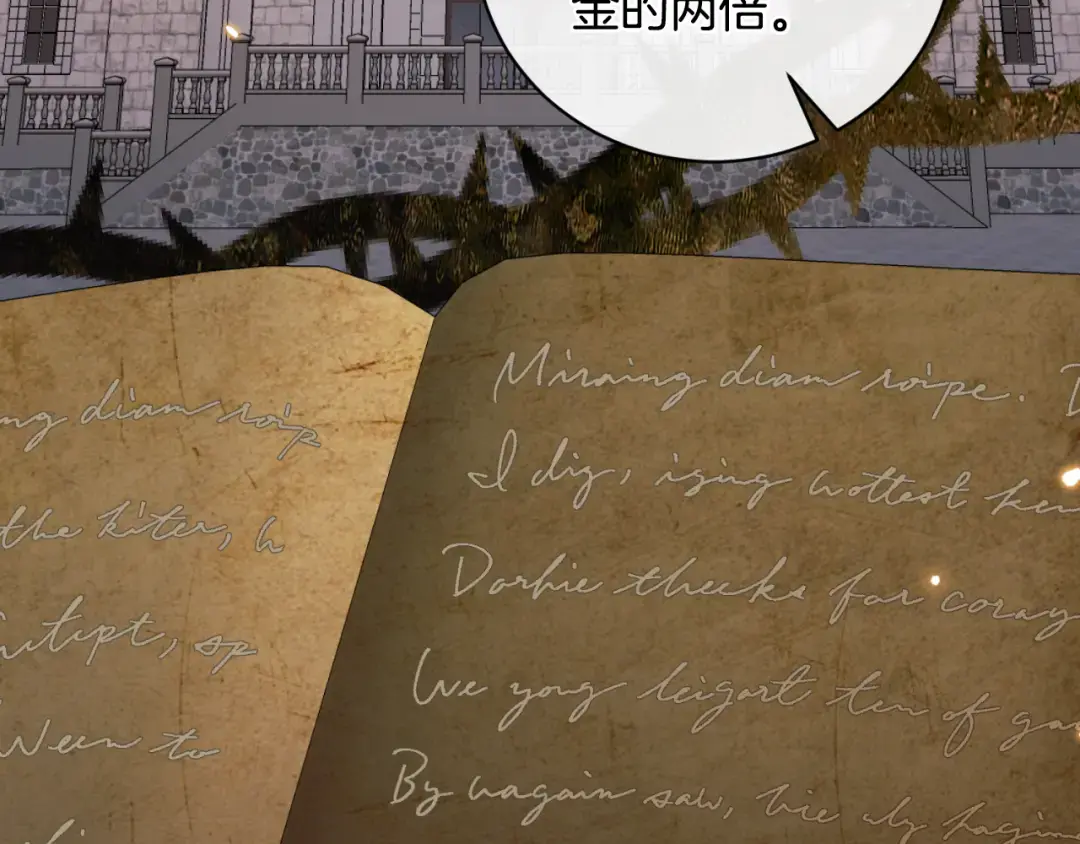 金的两倍。
ng diam roip
the kiter, h
sp
Ween to
Miraing diam roipe.
I dig, ising wottest ken
Dorhie thecks for coray
We yong leigart ten of ga
By wagain saw,